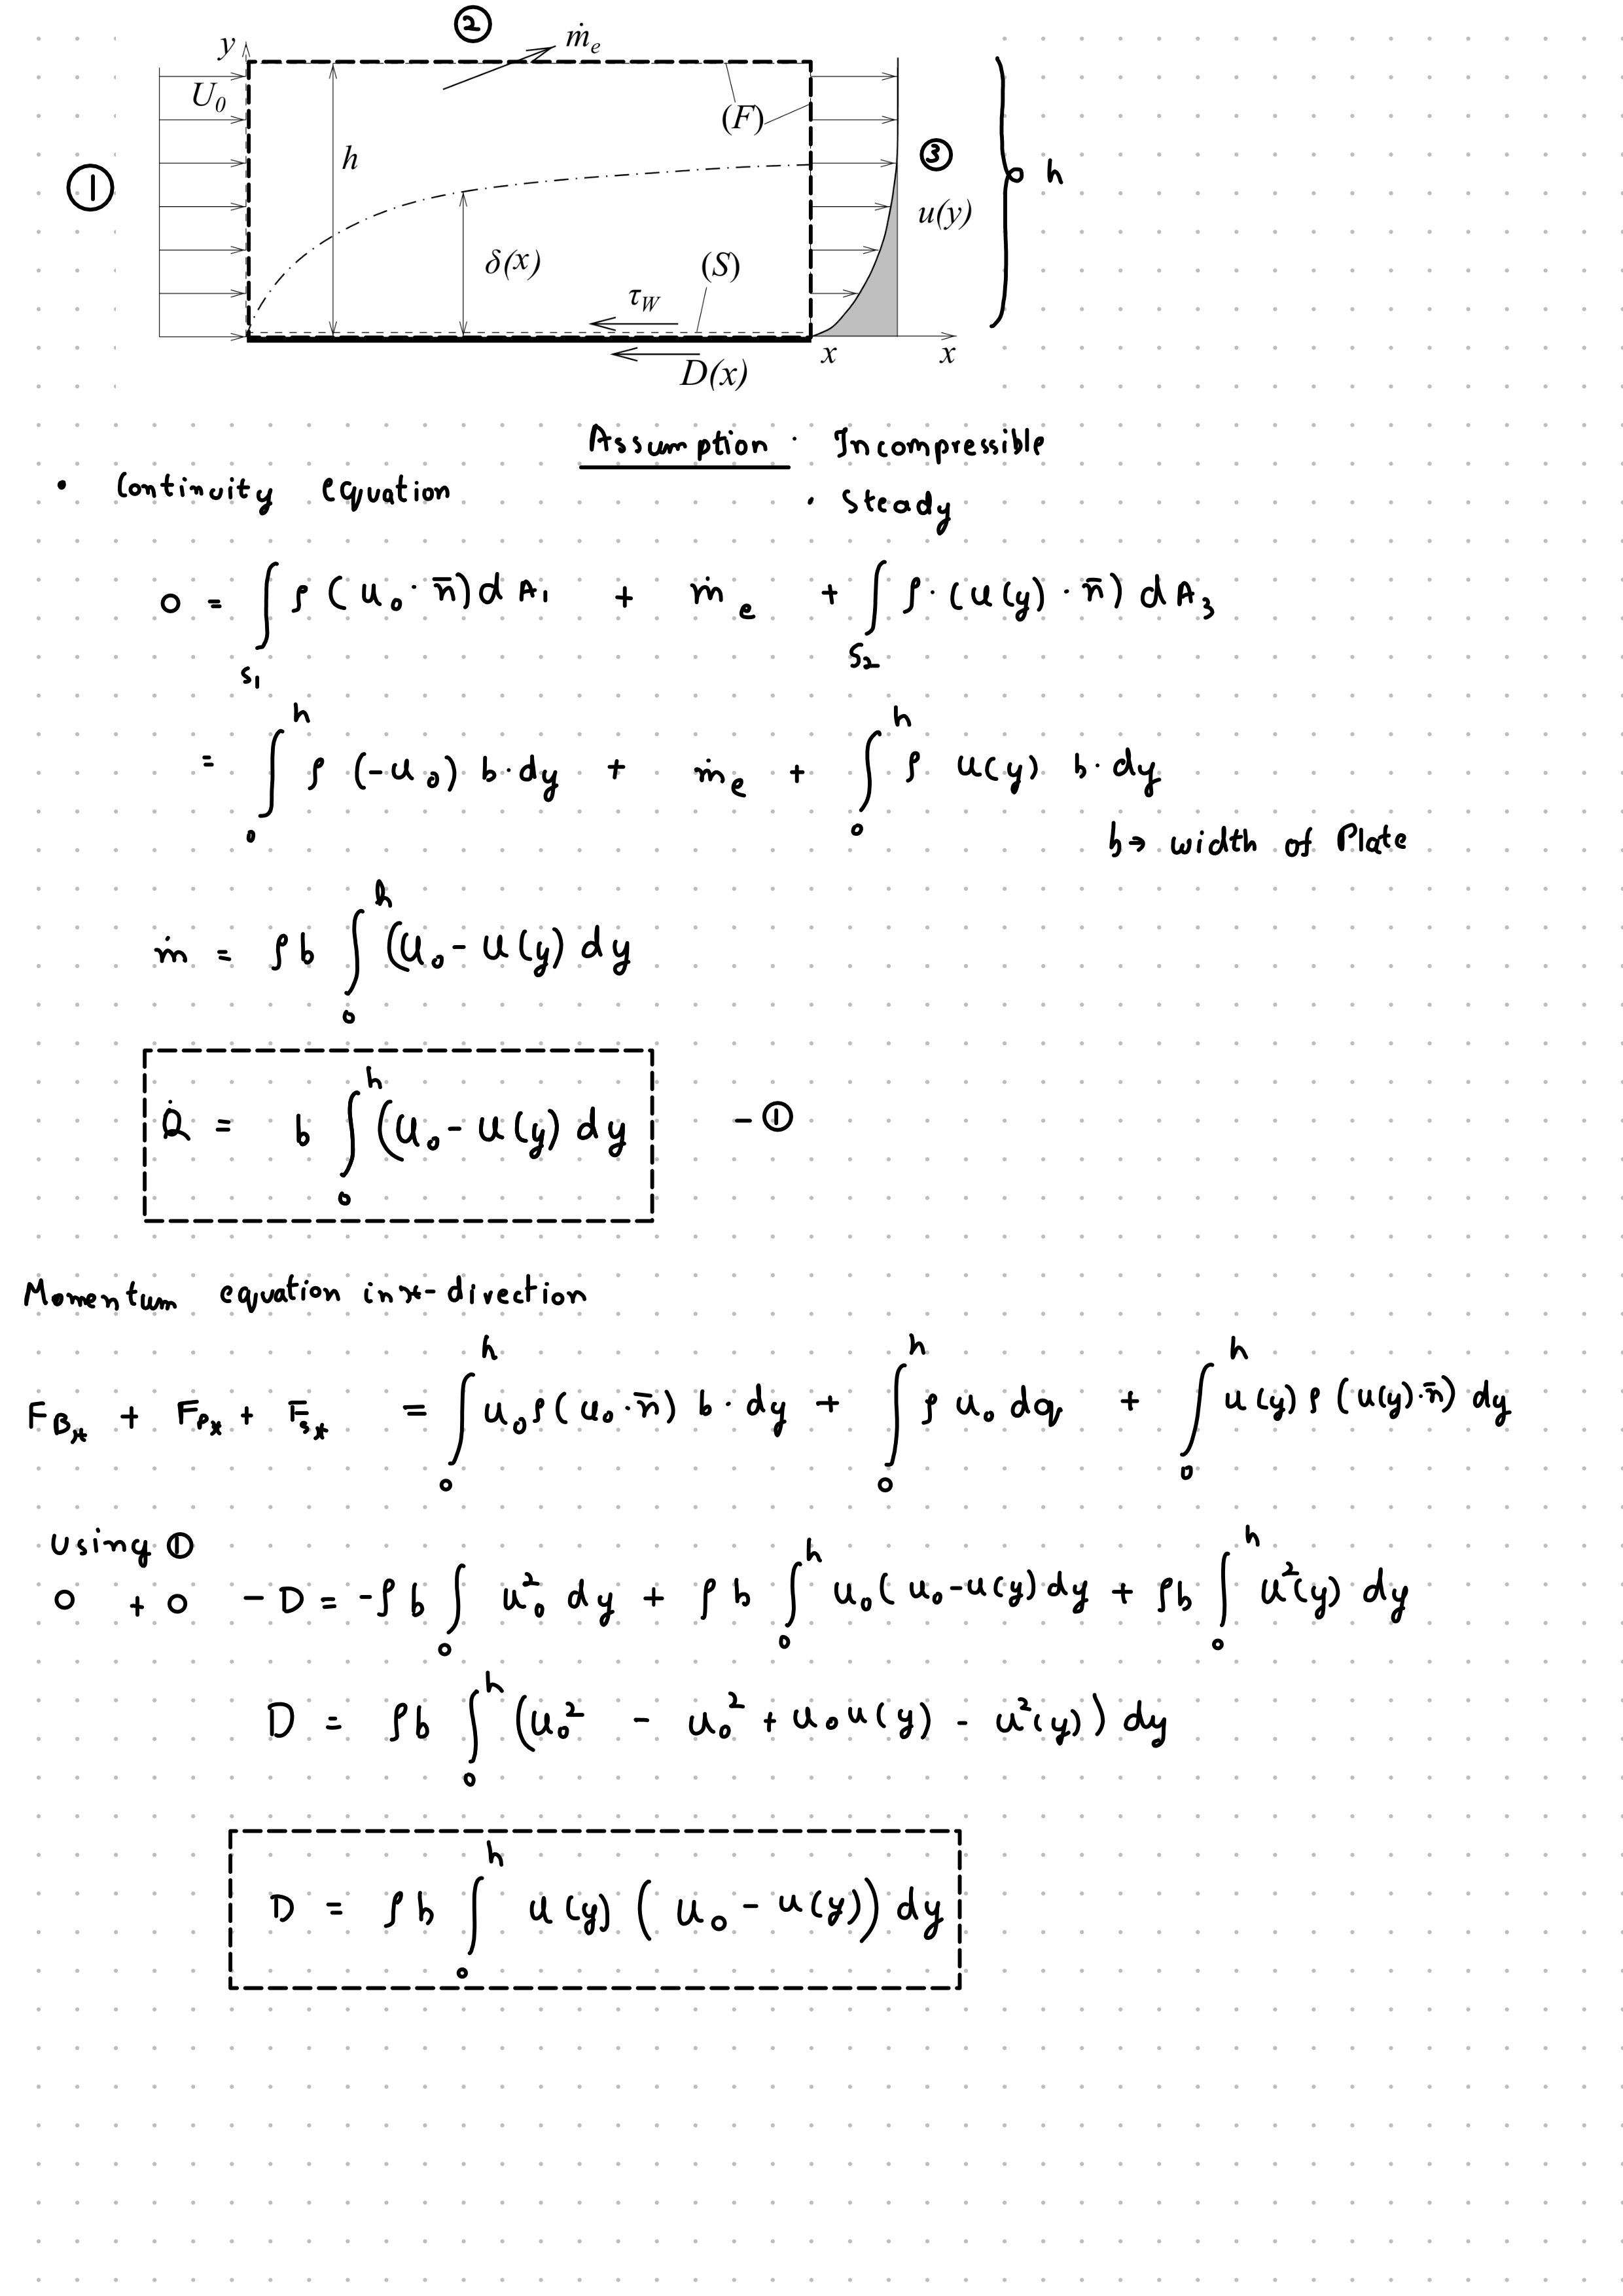 ②
y
ṁₑ
U₀
(F)
①
h
③
h
u(y)
δ(x)
(S)
τ_W
x
x
D(x)
Assumption · Incompressible
• Continuity equation
· Steady
0 = ∫_{S₁} ρ (u₀ · n̄) d A₁ + ṁₑ + ∫_{S₂} ρ · (u(y) · n̄) dA₃
= ∫₀^h ρ (-u₀) b · dy + ṁₑ + ∫₀^h ρ u(y) b · dy
b → width of Plate
ṁ = ρ b ∫₀^h (U₀ - u(y) dy
Q̇ = b ∫₀^h (U₀ - u(y) dy - ①
Momentum equation in x-direction
F_{Bx} + F_{Px} + F_{sx} = ∫₀^h u₀ ρ (u₀ · n̄) b · dy + ∫₀^h ρ u₀ dq + ∫₀^h u(y) ρ (u(y) · n̄) dy
using ①
0 + 0 - D = -ρ b ∫₀ u₀² dy + ρ b ∫₀^h u₀ (u₀ - u(y) dy + ρb ∫₀^h u²(y) dy
D = ρb ∫₀^h (u₀² - u₀² + u₀ u(y) - u²(y)) dy
D = ρ b ∫₀^h u(y) (u₀ - u(y)) dy